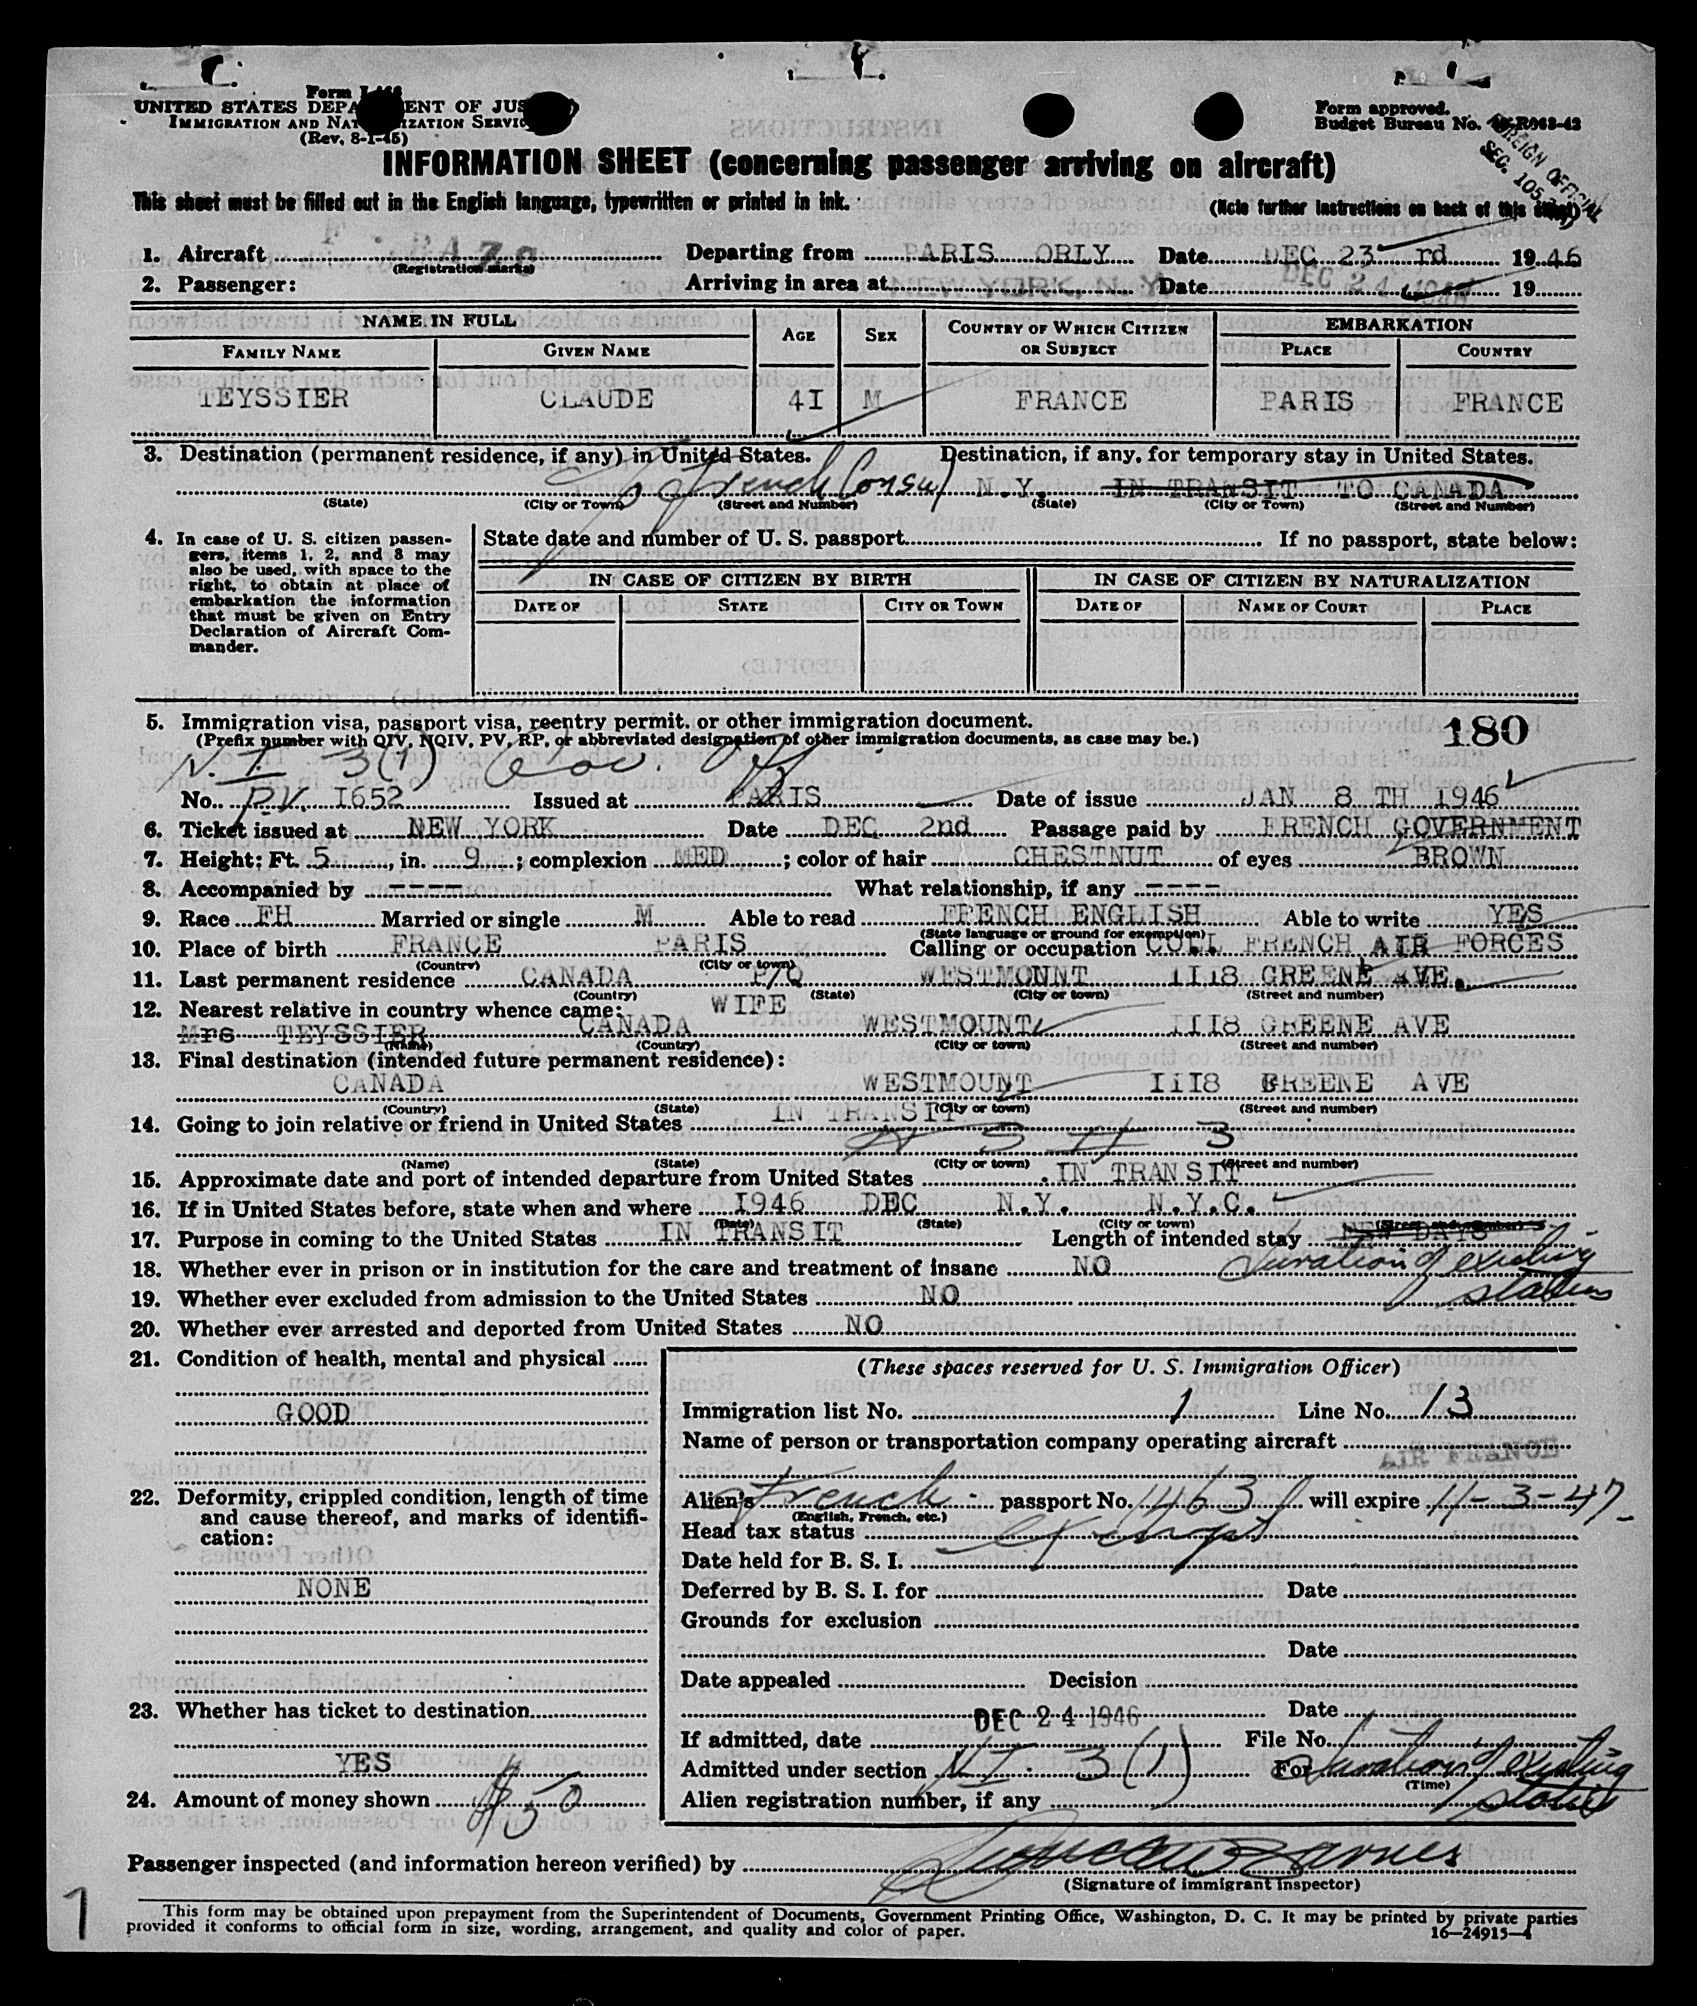 UNITED STATES DEPARTMENT OF JUSTICE
IMMIGRATION AND NATURALIZATION SERVICE
(Rev. 8-1-45)
Form approved.
Budget Bureau No. 43-R063-42
FOREIGN OFFICIAL
SEC. 105.3
INFORMATION SHEET (concerning passenger arriving on aircraft)
This sheet must be filled out in the English language, typewritten or printed in ink.
(Note further instructions on back of this sheet)
1. Aircraft F. BAZC Departing from PARIS ORLY Date DEC 23 rd 1946
(Registration marks)
2. Passenger: Arriving in area at NEW YORK, N. Y. Date DEC 24 1946 19
NAME IN FULL AGE SEX COUNTRY OF WHICH CITIZEN OR SUBJECT EMBARKATION
FAMILY NAME GIVEN NAME PLACE COUNTRY
TEYSSIER CLAUDE 4I M FRANCE PARIS FRANCE
3. Destination (permanent residence, if any) in United States. Destination, if any, for temporary stay in United States.
c/o French Consul N.Y. IN TRANSIT TO CANADA
(State) (City or Town) (Street and Number) (State) (City or Town) (Street and Number)
4. In case of U. S. citizen passengers, items 1, 2, and 8 may also be used, with space to the right, to obtain at place of embarkation the information that must be given on Entry Declaration of Aircraft Commander.
State date and number of U. S. passport If no passport, state below:
IN CASE OF CITIZEN BY BIRTH IN CASE OF CITIZEN BY NATURALIZATION
DATE OF STATE CITY OR TOWN DATE OF NAME OF COURT PLACE
5. Immigration visa, passport visa, reentry permit, or other immigration document.
(Prefix number with QIV, NQIV, PV, RP, or abbreviated designation of other immigration documents, as case may be.)
180
N.I 3(1) Gov. Off
No. P.V. I652 Issued at PARIS Date of issue JAN 8 TH 1946
6. Ticket issued at NEW YORK Date DEC 2nd Passage paid by FRENCH GOVERNMENT
7. Height: Ft. 5, in. 9; complexion MED; color of hair CHESTNUT of eyes BROWN
8. Accompanied by ---- What relationship, if any ----
9. Race FH Married or single M Able to read FRENCH ENGLISH Able to write YES
(State language or ground for exemption)
10. Place of birth FRANCE PARIS Calling or occupation COLL FRENCH AIR FORCES
(Country) (City or town)
11. Last permanent residence CANADA P/Q WESTMONNT III8 GREENE AVE.
(Country) (State) (City or town) (Street and number)
12. Nearest relative in country whence came: WIFE
Mrs TEYSSIER CANADA WESTMOUNT III8 GREENE AVE
(Name) (Country) (City or town) (Street and number)
13. Final destination (intended future permanent residence):
CANADA WESTMOUNT III8 GREENE AVE
(Country) (State) (City or town) (Street and number)
14. Going to join relative or friend in United States IN TRANSIT
(Name) (State) (City or town) (Street and number)
15. Approximate date and port of intended departure from United States IN TRANSIT
16. If in United States before, state when and where I946 DEC N.Y. N.Y.C.
(Date) (State) (City or town) (Street and number)
17. Purpose in coming to the United States IN TRANSIT Length of intended stay FEW DAYS
duration of existing status
18. Whether ever in prison or in institution for the care and treatment of insane NO
19. Whether ever excluded from admission to the United States NO
20. Whether ever arrested and deported from United States NO
21. Condition of health, mental and physical
GOOD
22. Deformity, crippled condition, length of time and cause thereof, and marks of identification:
NONE
23. Whether has ticket to destination
YES
24. Amount of money shown $50
(These spaces reserved for U. S. Immigration Officer)
Immigration list No. 1 Line No. 13
Name of person or transportation company operating aircraft
AIR FRANCE
Alien's French passport No. 1463 will expire 11-3-47
(English, French, etc.)
Head tax status exempt
Date held for B. S. I.
Deferred by B. S. I. for Date
Grounds for exclusion
Date
Date appealed Decision
Date
If admitted, date DEC 24 1946 File No.
Admitted under section N.I. 3(1) For duration of existing status
(Time)
Alien registration number, if any
Passenger inspected (and information hereon verified) by
(Signature of immigrant inspector)
This form may be obtained upon prepayment from the Superintendent of Documents, Government Printing Office, Washington, D. C. It may be printed by private parties
provided it conforms to official form in size, wording, arrangement, and quality and color of paper.
16—24915-4
1